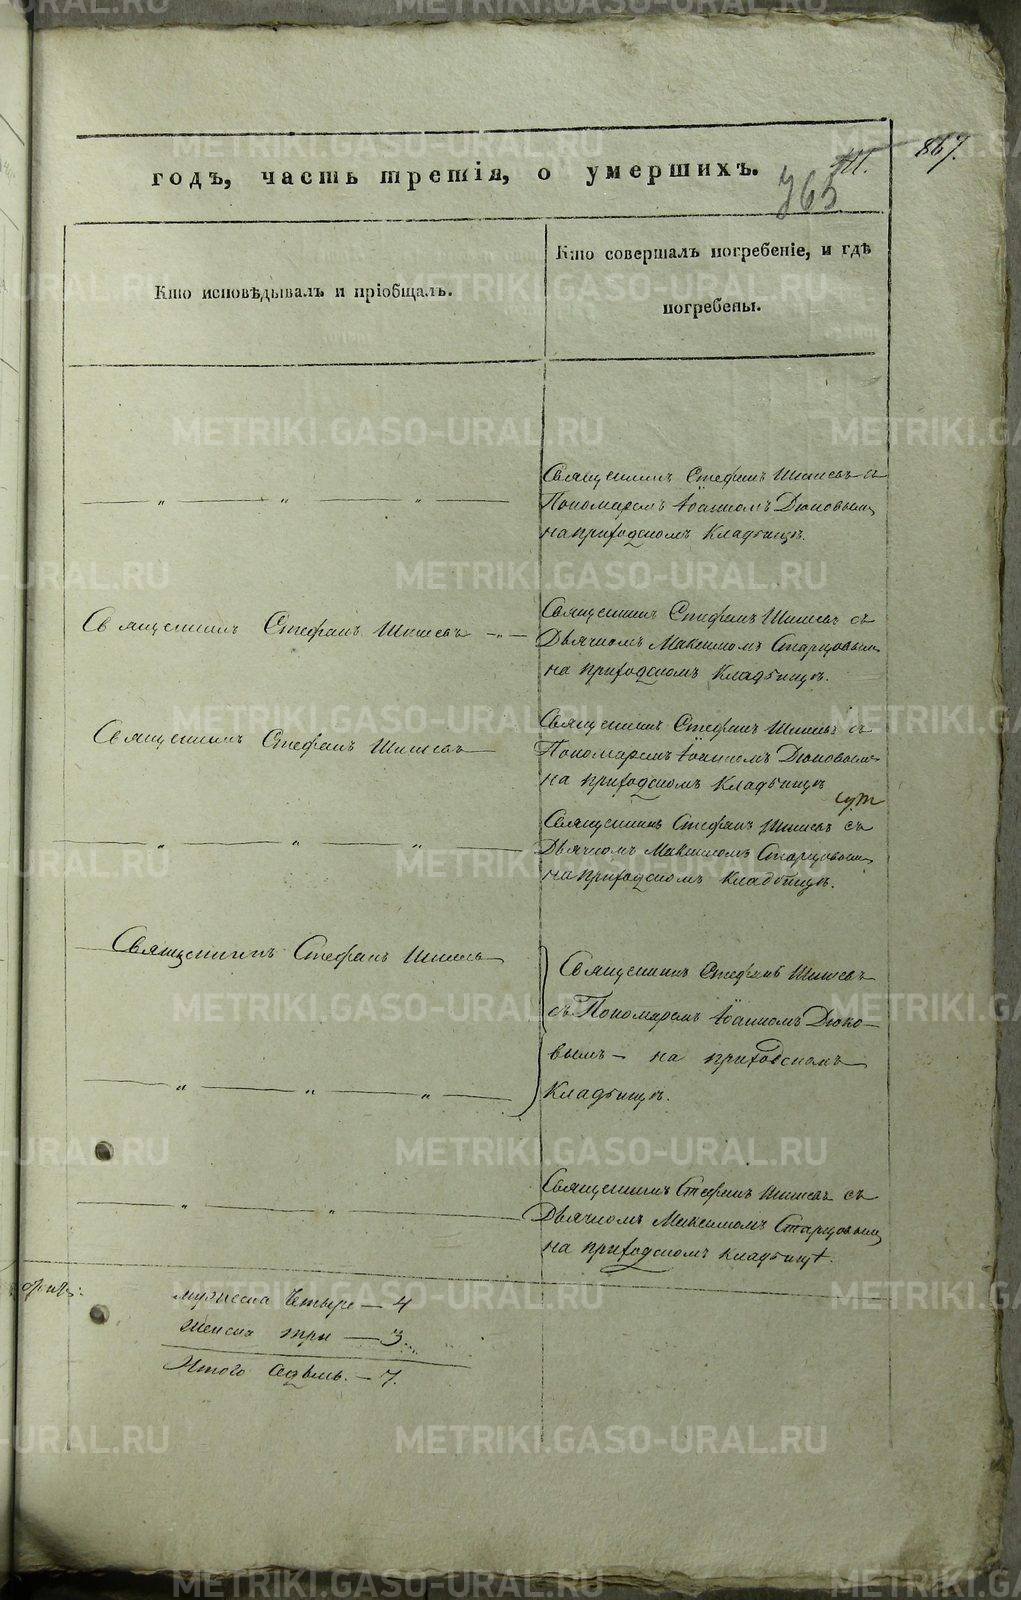 867.
765
годъ, часть третія, о умершихъ.
Кто исповѣдывалъ и пріобщалъ.
Кто совершалъ погребеніе, и гдѣ
погребены.
Священникъ Стефанъ Шишевъ съ
Пономаремъ Іоанномъ Дюковымъ
на приходскомъ кладбищѣ.
Священникъ Стефанъ Шишевъ
Священникъ Стефанъ Шишевъ съ
Дьячкомъ Максимомъ Старцовымъ
на приходскомъ кладбищѣ.
Священникъ Стефанъ Шишевъ
Священникъ Стефанъ Шишевъ съ
Пономаремъ Іоанномъ Дюковымъ
на приходскомъ кладбищѣ
Священникъ Стефанъ Шишевъ съ
Дьячкомъ Максимомъ Старцовымъ
на приходскомъ кладбищѣ.
Священникъ Стефанъ Шишевъ
Священникъ Стефанъ Шишевъ
съ Пономаремъ Іоанномъ Дюко-
вымъ — на приходскомъ
кладбищѣ.
Священникъ Стефанъ Шишевъ съ
Дьячкомъ Максимомъ Старцовымъ
на приходскомъ кладбищѣ.
мужеска четыре — 4
женска три — 3
Итого седмь. — 7.
METRIKI.GASO-URAL.RU